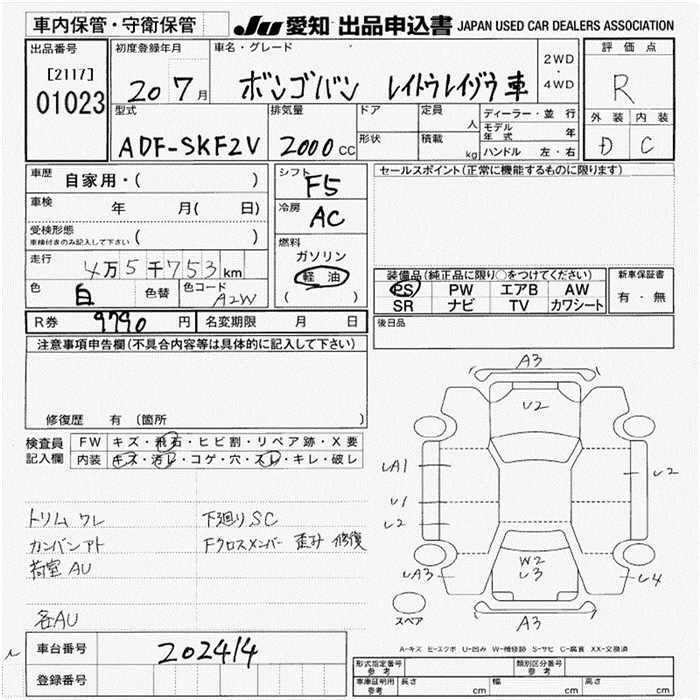 車内保管・守衛保管
JU 愛知 出品申込書 JAPAN USED CAR DEALERS ASSOCIATION
出品番号
[2117]
01023
初度登録年月
20 7月
車名・グレード
ボンゴバン レイトウレイゾウ車
2WD
・
4WD
評価点
R
外装 内装
D C
型式
ADF-SKF2V
排気量
2000 CC
ドア
形状
定員
人
積載
kg
ディーラー・並行
モデル年式 年
ハンドル 左・右
車歴 自家用・( )
車検 年 月( 日)
受検形態
車検付きのみ記入して下さい ( )
走行 4万5千753km
色 白 色替 色コード A2W
シフト F5
冷房 AC
燃料
ガソリン
軽油
( )
セールスポイント(正常に機能するものに限ります)
装備品(純正品に限り○をつけてください)
PS PW エアB AW
SR ナビ TV カワシート
新車保証書
有・無
R券 9790 円 名変期限 月 日
後日品
注意事項申告欄(不具合内容等は具体的に記入して下さい)
修復歴 有 (箇所 )
検査員記入欄
FW キズ・飛石・ヒビ割・リペア跡・X要
内装 キズ・汚レ・コゲ・穴・スレ・キレ・破レ
トリム ワレ 下廻りSC
カンバンアト Fクロスメンバー 歪み 修復
荷室AU
各AU
A3
U2
UA1
U2
U1
U2
W2
U3
UA3
U4
スペア
A3
A-キズ E-エクボ U-凹み W-補修跡 S-サビ C-腐食 XX-交換済
車台番号 202414
登録番号
形式指定番号 参考
類別区分番号 参考
車庫証明用 参考 長さ cm 幅 cm 高さ cm